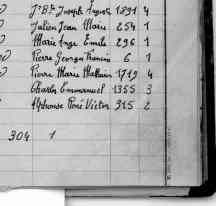 Jn Bte Joseph Auguste 1891 4
Julien Jean Marie 254 1
Marie Ange Emile 296 1
Pierre Georges Francis 6 1
Pierre Marie Mathurin 1719 4
Charles Emmanuel 1355 3
Alphonse René Victor 315 2
304 1